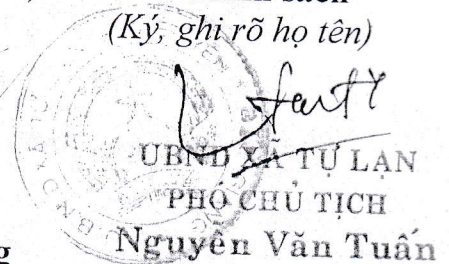 (Ký, ghi rõ họ tên)
UBND XÃ TỰ LẠN
PHÓ CHỦ TỊCH
Nguyễn Văn Tuấn